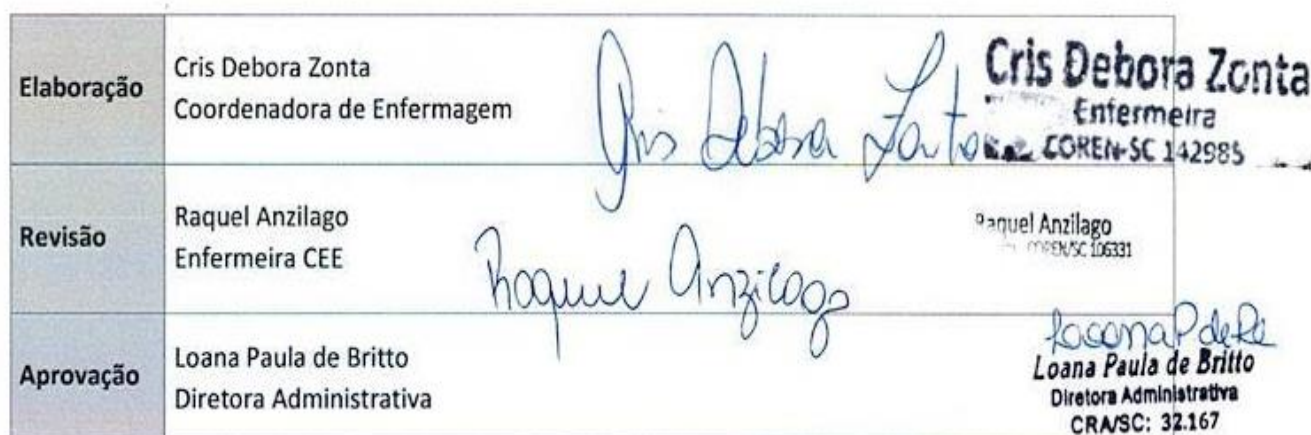 Elaboração
Cris Debora Zonta
Coordenadora de Enfermagem
Cris Debora Zonta
Cris Debora Zonta
Enfermeira
COREN-SC 142985
Revisão
Raquel Anzilago
Enfermeira CEE
Raquel Anzilago
Raquel Anzilago
COREN/SC 106331
Aprovação
Loana Paula de Britto
Diretora Administrativa
Loana Paula de Britto
Diretora Administrativa
CRA/SC: 32.167